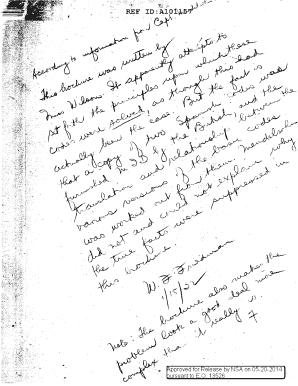 REF ID:A101157
According to information for Capt.
This brochure was written by
Miss Wilson. It apparently attempts to
set forth the principles upon which these
codes were solved, as though this had
actually been the case. But the fact is
that a copy of two Spanish codes was
furnished by the British, and the
translation and relationship between the
various versions of the basic codes
was worked out from them. Mendelsohn
did not and could not explain why
the true facts were suppressed in
this brochure.
W. F. Friedman
Note: The brochure also makes the
problem look a good deal more
complex than it really is.
F
Approved for Release by NSA on 05-20-2014
pursuant to E.O. 13526